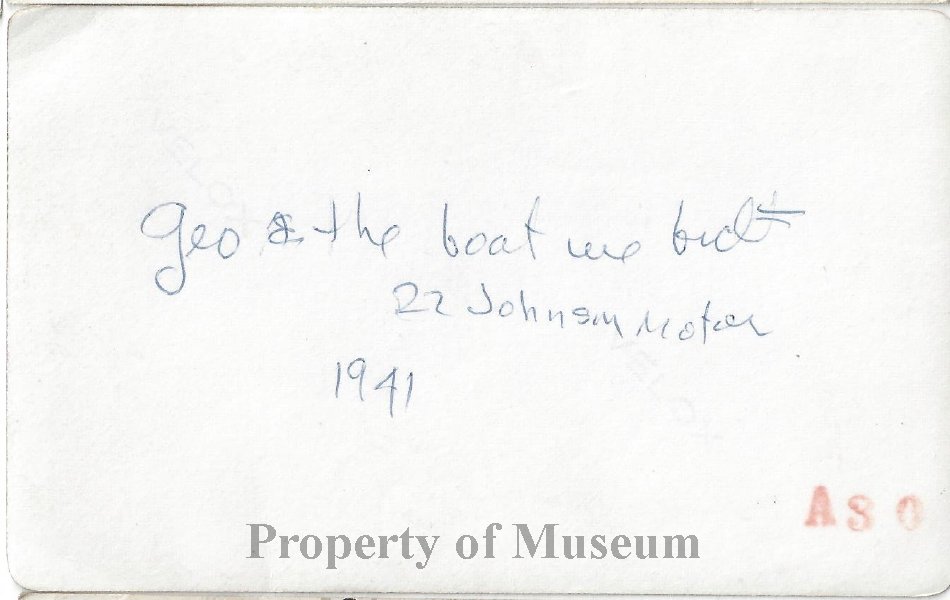 Geo & the boat we built
22 Johnson Motor
1941
A80
Property of Museum